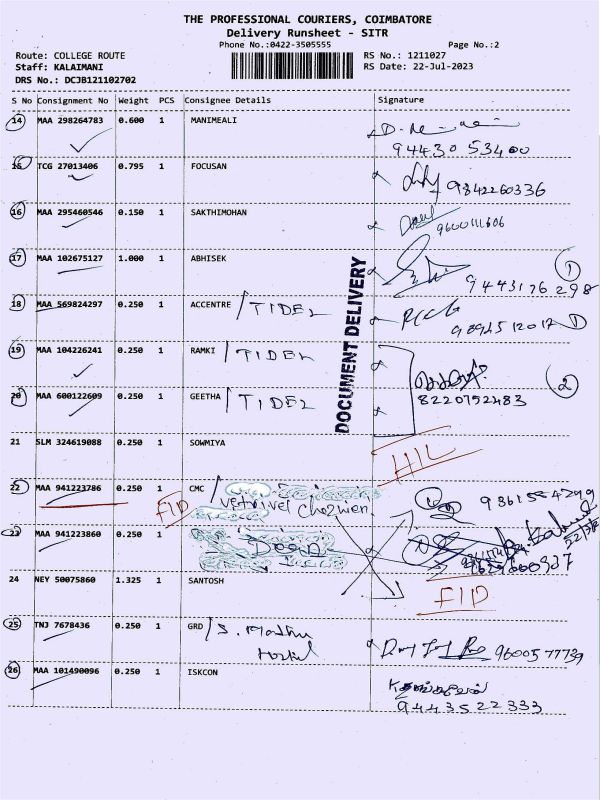 THE PROFESSIONAL COURIERS, COIMBATORE
Delivery Runsheet - SITR
Phone No.:0422-3505555 Page No.:2
Route: COLLEGE ROUTE RS No.: 1211027
Staff: KALAIMANI RS Date: 22-Jul-2023
DRS No.: DCJB121102702
S No Consignment No Weight PCS Consignee Details Signature
14 MAA 298264783 0.600 1 MANIMEALI
94430 53400
15 TCG 27013406 0.795 1 FOCUSAN 9842260336
16 MAA 295460546 0.150 1 SAKTHIMOHAN 9600111606
17 MAA 102675127 1.000 1 ABHISEK 1
9443176298
18 MAA 569824297 0.250 1 ACCENTRE / TIDEL
19 MAA 104226241 0.250 1 RAMKI / TIDEL
20 MAA 600122609 0.250 1 GEETHA / TIDEL 2
8220752483
DOCUMENT DELIVERY
21 SLM 324619088 0.250 1 SOWMIYA HIL
22 MAA 941223786 0.250 1 CMC / 9361554299
FID Vetrivel Chozhen
23 MAA 941223860 0.250 1 Dean
24 NEY 50075860 1.325 1 SANTOSH FID
25 TNJ 7678436 0.250 1 GRD / S. Madhu
Hostel 9600577739
26 MAA 101490096 0.250 1 ISKCON
9443522333